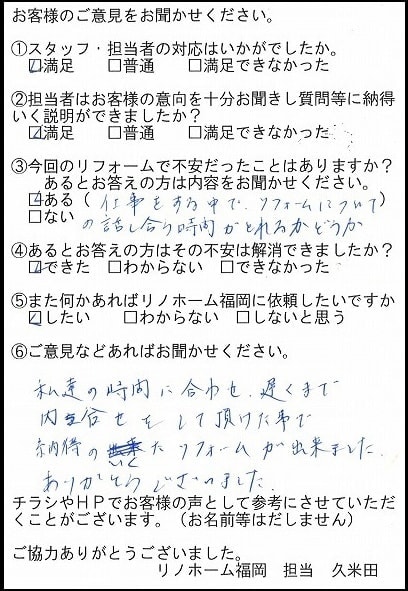 お客様のご意見をお聞かせください。
①スタッフ・担当者の対応はいかがでしたか。
☑満足 □普通 □満足できなかった
②担当者はお客様の意向を十分お聞きし質問等に納得
いく説明ができましたか?
☑満足 □普通 □満足できなかった
③今回のリフォームで不安だったことはありますか?
あるとお答えの方は内容をお聞かせください。
☑ある(仕事をする中で、リフォームについて)
□ない の話し合う時間がとれるかどうか
④あるとお答えの方はその不安は解消できましたか?
☑できた □わからない □できなかった
⑤また何かあればリノホーム福岡に依頼したいですか
☑したい □わからない □しないと思う
⑥ご意見などあればお聞かせください。
私達の時間に合わせ、遅くまで
内容合せをして頂けた事で
納得のいくリフォームが出来ました。
ありがとうございました。
チラシやHPでお客様の声として参考にさせていただ
くことがございます。(お名前等はだしません)
ご協力ありがとうございました。
リノホーム福岡 担当 久米田